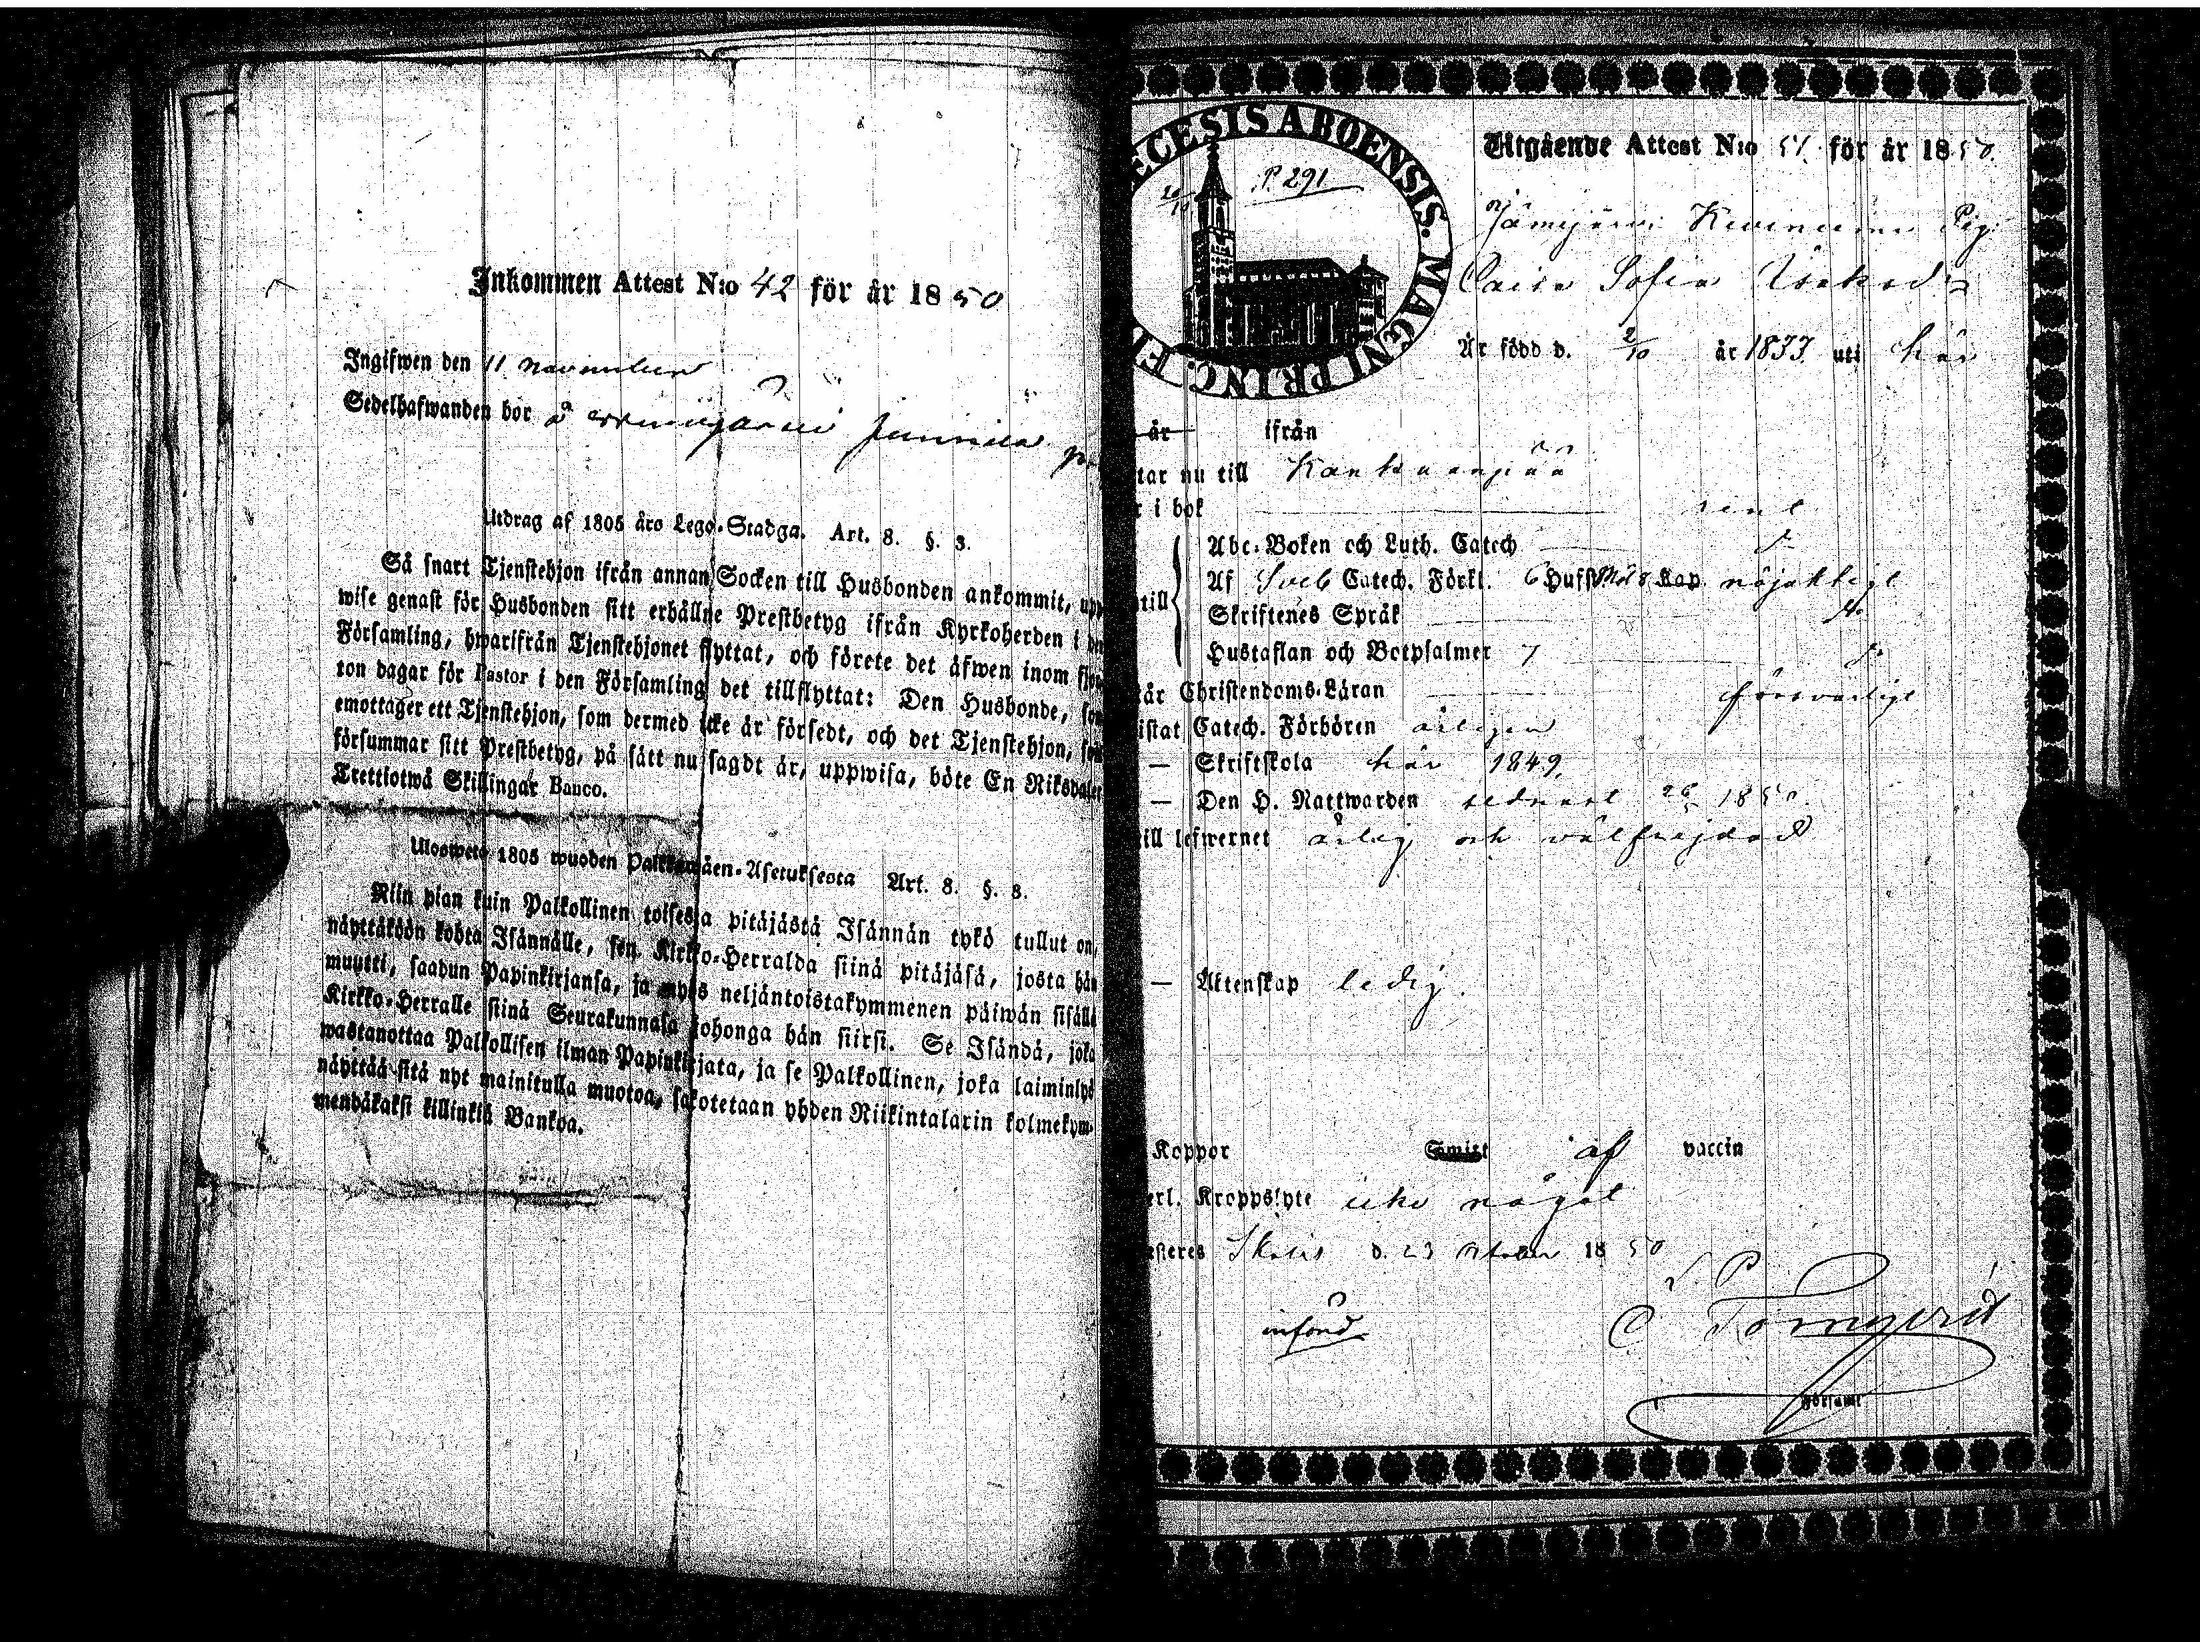 Inkommen Attest N:o 42 för år 1850
Ingifwen den 11 november
Sedelhafwanden bor å
Utdrag af 1805 års Lego-Stadga. Art. 8. §. 3.
Så snart Tjenstehjon ifrån annan Socken till Husbonden ankommit, upp
wise genast för Husbonden sitt erhållne Prestbetyg ifrån Kyrkoherden i den
Församling, hwarifrån Tjenstehjonet flyttat, och förete det äfwen inom fjor
ton dagar för Pastor i den Församling det tillflyttat: Den Husbonde, som
emottager ett Tjenstehjon, som dermed icke är försedt, och det Tjenstehjon, som
försummar sitt Prestbetyg, på sätt nu sagdt är, uppwisa, böte En Riksdaler
Trettiotwå Skillingar Banco.
Ulosweto 1805 wuoden Palkkawäen-Asetuksesta Art. 8. §. 3.
Niin pian kuin Palkollinen toisesta pitäjästä Isännän tykö tullut on,
näyttäköön kohta Isännälle, sen Kirkko-Herralda siinä pitäjäsä, josta hän
muutti, saadun Papinkirjansa, ja myös neljäntoistakymmenen päiwän sisällä
Kirkko-Herralle siinä Seurakunnasa johonga hän siirsi. Se Isändä, joka
wastanottaa Palkollisen ilman Papinkirjata, ja se Palkollinen, joka laiminlyö
näyttää sitä nyt mainitulla muotoa, sakotetaan yhden Riikintalarin kolmekym-
mendäkaksi killinkiä Bankoa.
ECESIS ABOENSIS. MAGNI PRINC. FI
P. 291
Utgående Attest N:o 51 för år 1850.
Jämijärvi Pig.
Caisa Sofia
Är född d. 2/10 år 1833. uti här
år ifrån
tar nu till Kankaanpää
r i bok rent
Abc-Boken och Luth. Catech d:o
till
Af Sveb Catech. Förkl. 6 Hufst. Kap nöjaktigt
Skriftenes Språk d:o
Hustaflan och Botpsalmer 7 d:o
tår Christendoms-Läran försvarligt
istat Catech. Förhören årligen
— Skriftskola här 1849.
— Den H. Nattwarden sednast 1850.
till lefwernet ärlig och välfrejdad
— Äktenskap ledig.
Koppor Smitt af vaccin
erl. Kroppslyte icke något
esteres d. 23 October 1850
införd
Församl